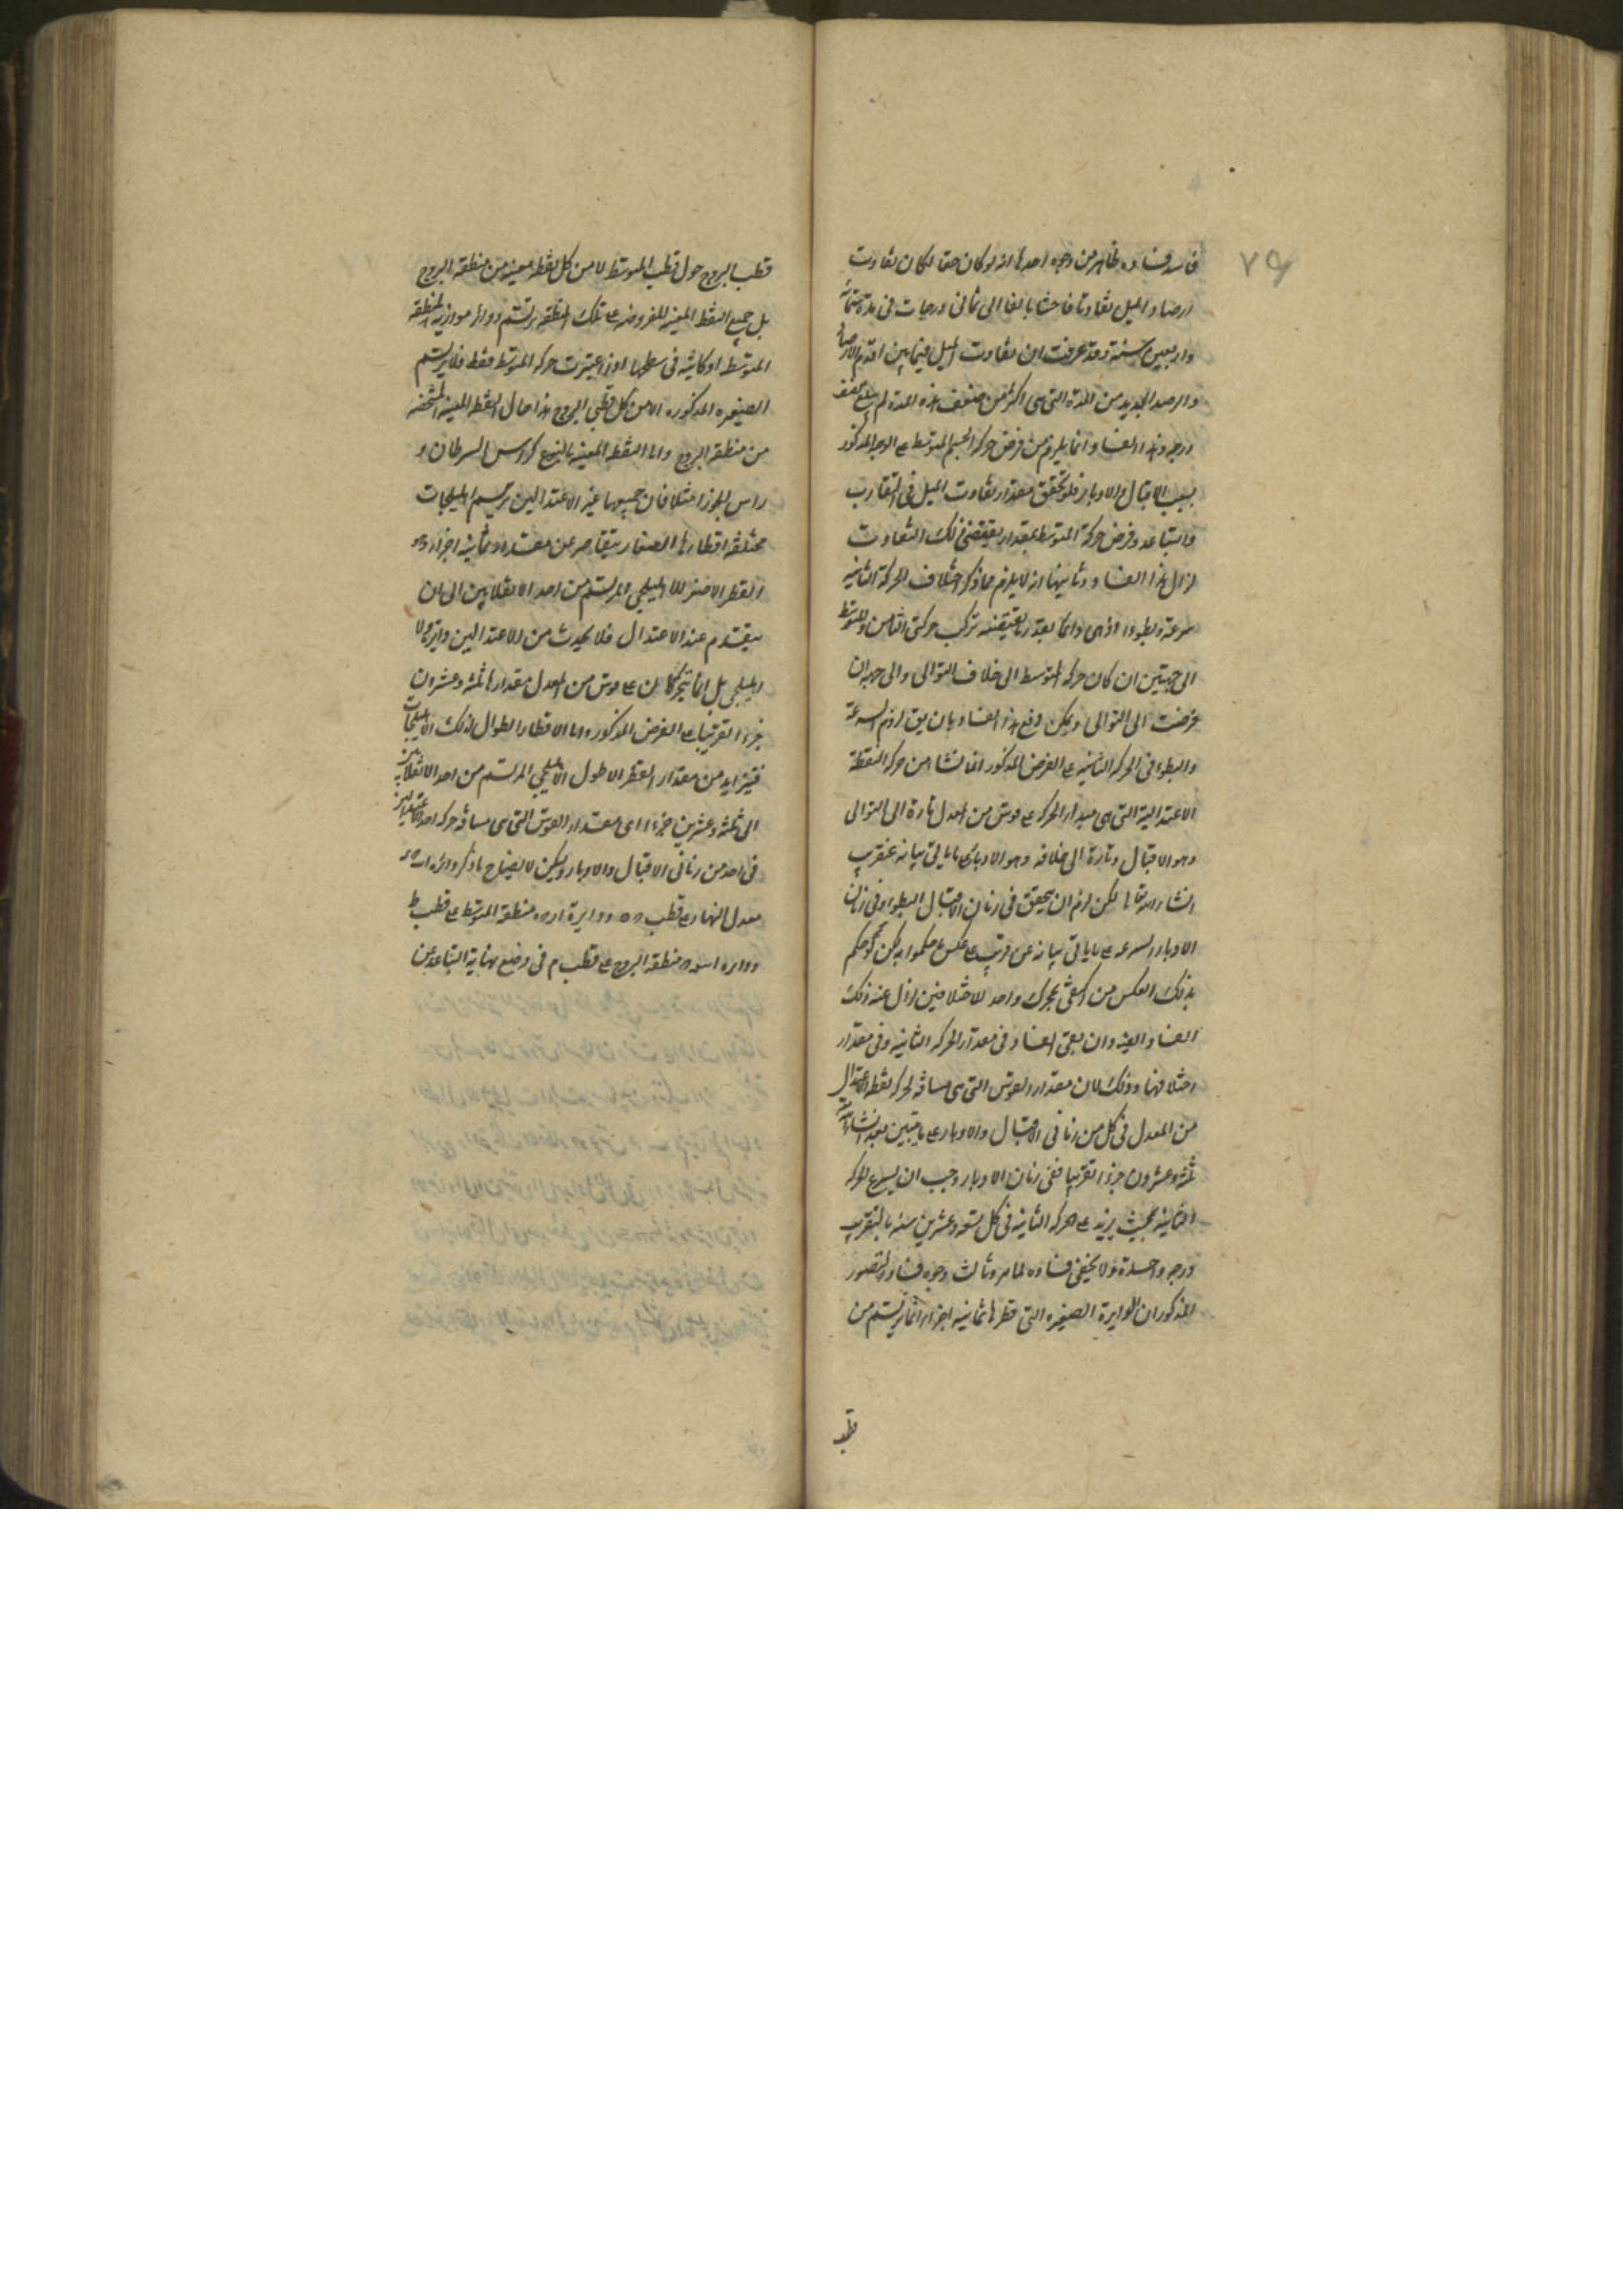 ٧٩
فاسد فساده ظاهر من وجوه احدها انه لو كان حقا لكان تفاوت
ارصاد الميل تفاوتا فاحشا بالغا الى ثمانى درجات فى مدة ستمائة
واربعين سنة وقد عرفت ان تفاوت الميل فيما بين اقدم الارصاد
والرصد الجديد من المدة التى هى اكثر من ضعف هذه المدة لم يبلغ نصف
درجه وهذا الفساد انما يلزم من فرض حركة الجسم المتوسط على الوجه المذكور
بسبب الاقبال والادبار فلو تحقق مقدار تفاوت الميل فى التقارب
والتباعد وفرض حركة المتوسط بمقدار يقتضى ذلك التفاوت
لزال هذا الفساد وثانيها انه لا يلزم مما ذكر اختلاف الحركة الثانيه
سرعة وبطوءا اذ هى دائما بقدر ما يقتضيه تركب حركتى الثامن والمتوسط
الى جهتين ان كان حركه المتوسط الى خلاف التوالى والى جهه ان
فرضت الى التوالى ويمكن دفع هذا الفساد بان يق لزوم السرعة
والبطوء فى الحركه الثانيه على الفرض المذكور انما نشا من حركه النقطة
الاعتداليه التى هى مبدأ الحركه على قوس من المعدل تارة الى التوالى
وهو الاقبال وتارة الى خلافه وهو الادبار على ما ياتى بيانه عنقريب
انشاء الله تعالى لكن لزم ان يتحقق فى زمان الاقبال البطوء وفى زمان
الادبار السرعه على ما ياتى بيانه عن قريب على عكس ما حكموا به لكن لو حكم
بذلك العكس من اكتفى بمحرك واحد للاختلافين لزال عنه ذلك
الفساد البته وان بقى الفساد فى مقدار الحركه الثانيه وفى مقدار
اختلافها وذلك لان مقدار القوس التى هى مسافه لحركه نقطه الاعتدال
من المعدل فى كل من زمانى الاقبال والادبار على ما يتبين بعد انشاء الله
ثلثه وعشرون جزءا تقريبا ففى زمان الادبار وجب ان يسرع الحركه
الثانيه بحيث يزيد على الحركه الثانيه فى كل سته وعشرين سنه بالتقريب
درجه واحدة ولا يخفى فساده لما مر وثالث وجوه فساد التصور
المذكور ان الدايرة الصغيره التى قطرها ثمانيه اجزاء انما يرتسم من
قطب
قطب البروج حول قطب المتوسط لا من كل نقطه معينه من منطقه البروج
بل جميع النقط المعينه المفروضه على تلك المنطقه يرتسم دوائر موازيه لمنطقه
المتوسط او كائنه فى سطحها اذا اعتبرت حركه المتوسط فقط فلا يرتسم
الصغيره المذكوره الا من كل قطبى البروج هذا حال النقط المعينه المشخصه
من منطقه البروج واما النقط المعينه بالنوع كراس السرطان و
راس الجوزا مثلا فان جميعها غير الاعتدالين يرتسم اهليلجات
مختلفه اقطارها الصغار يتقاصر عن مقدار ثمانيه اجزاء وهو
القطر الاصغر للاهليلجى المرتسم من احد الانقلابين الى ان
ينعدم عند الاعتدال فلا يحدث من الاعتدالين دايرة ولا
اهليلجى بل انما يتحركان على قوس من المعدل مقدارها ثلثه وعشرون
جزءا تقريبا على الفرض المذكور واما الاقطار الطوال لذلك الاهليلجات
فيتزايد من مقدار القطر الاطول الاهليلجى المرتسم من احد الانقلابين
الى ثلثه وعشرين جزءا اى مقدار القوس التى هى مسافه حركه احد الاعتدالين
فى احد من زمانى الاقبال والادبار وليكن لايضاح ما ذكر دائره
معدل النهار على قطب ودايرة منطقه المتوسط على قطب ط
ودايره منطقه البروج على قطب م فى وضع نهاية التباعد من